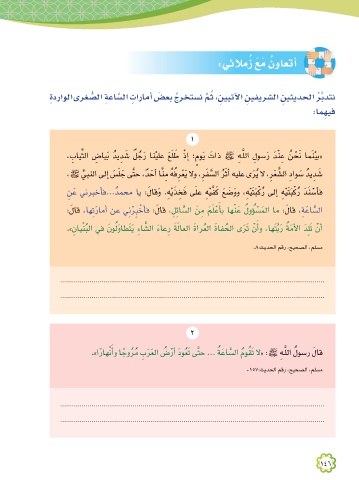 أتعاونُ مَعَ زُملائي:
نتدبَّرُ الحديثين الشريفين الآتيين، ثُمَّ نستخرجُ بعضَ أمارات السَّاعة الصُّغرى الواردة
فيهما:
١
«بَيْنَما نَحْنُ عِنْدَ رَسولِ اللَّه ﷺ ذاتَ يَومٍ؛ إذْ طَلَعَ علَيْنا رَجُلٌ شَديدُ بَياضِ الثِّيابِ،
شَديدُ سَوادِ الشَّعْرِ، لا يُرَى عليه أثَرُ السَّفَرِ، ولا يَعْرِفُهُ مِنَّا أحَدٌ، حتَّى جَلَسَ إلى النبيِّ ﷺ،
فأسْنَدَ رُكْبَتَيْهِ إلى رُكْبَتَيْهِ، ووَضَعَ كَفَّيْهِ علَى فَخِذَيْهِ. وَقالَ: يا محمدُ...فأخبرني عَنِ
السَّاعَةِ، قالَ: ما المَسْؤُولُ عَنْها بأَعْلَمَ مِنَ السَّائِلِ، قالَ: فأخْبِرْنِي عن أمارَتِها، قالَ:
أنْ تَلِدَ الأمَةُ رَبَّتَها، وأَنْ تَرَى الحُفاةَ العُراةَ العالَةَ رِعاءَ الشَّاءِ يَتَطاوَلُونَ في البُنْيانِ».
مسلم، الصحيح، رقم الحديث ٨.
٢
قالَ رسولُ اللَّهِ ﷺ: «لا تَقُومُ السَّاعَةُ ... حتَّى تَعُودَ أرْضُ العَرَبِ مُرُوجًا وأَنْهارًا».
مسلم، الصحيح، رقم الحديث ١٥٧.
١٤٦